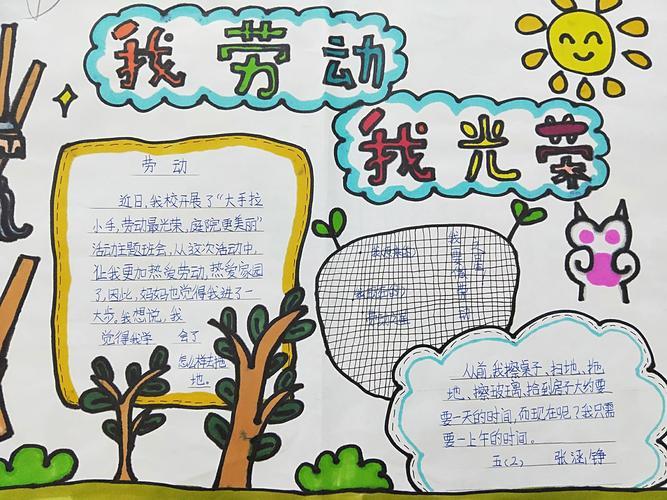 我劳动
我光荣
劳动
近日,我校开展了“大手拉
小手,劳动最光荣、庭院更美丽”
活动主题班会,从这次活动中,
让我更加热爱劳动,热爱家园
了,因此,妈妈也觉得我进了一
大步。我想说,我
觉得我学 会了
怎么样去拖
地。
从前,我擦桌子、扫地、拖
地、擦玻璃,拾到房子大约要
要一天的时间,而现在呢?我只需
要一上午的时间。
五(2) 张涵铮